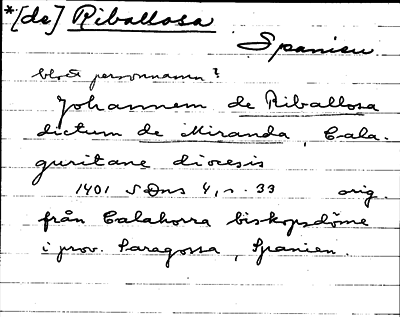 *[de] Riballosa
Spanien
personnamn?
Johannem de Riballosa
dictum de Miranda, Cala-
guritane diocesis
1401 SDns 4, n. 33 orig.
från Calahorra biskopsdöme
i prov. Saragossa, Spanien.